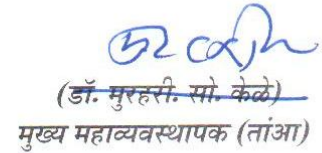 (डॉ. मुरहरी. सो. केळे)
मुख्य महाव्यवस्थापक (तांआ)